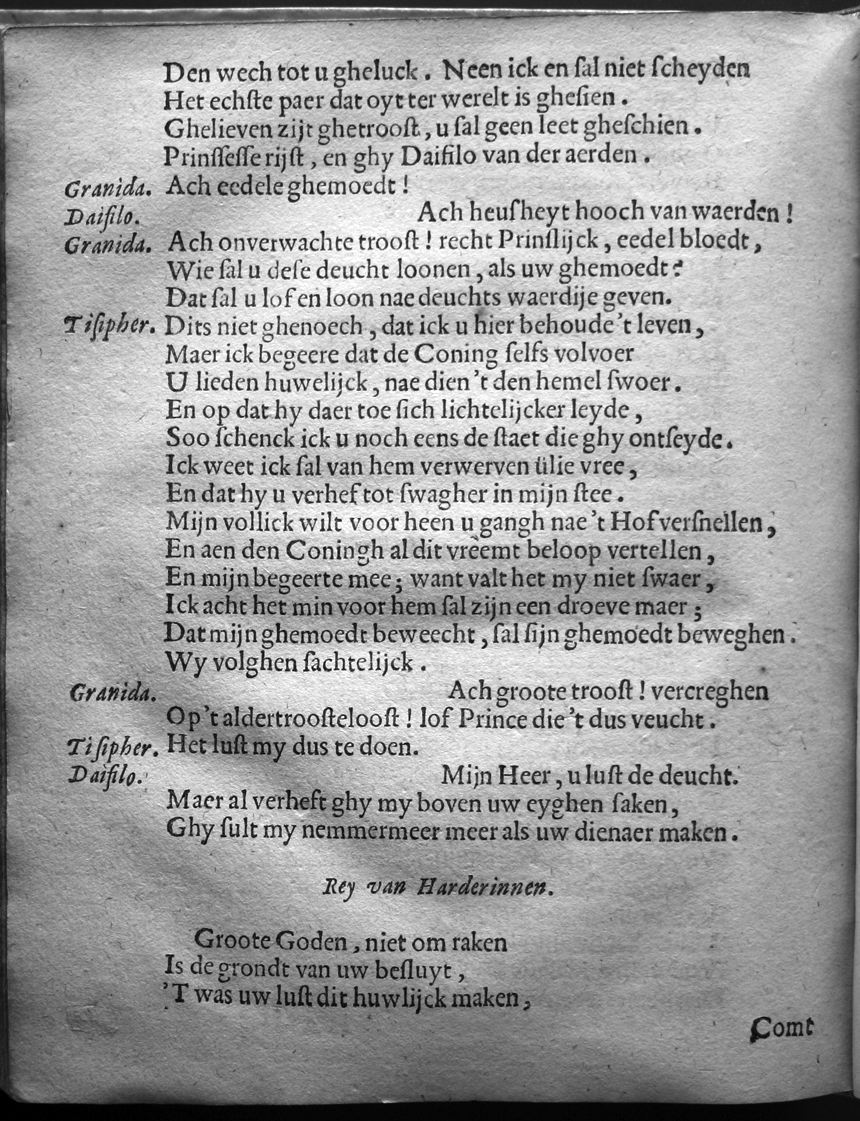 Den wech tot u gheluck. Neen ick en ſal niet ſcheyden
Het echſte paer dat oyt ter werelt is gheſien.
Ghelieven zijt ghetrooſt, u ſal geen leet gheſchien.
Prinſſeſſe rijſt, en ghy Daifilo van der aerden.
Granida. Ach eedele ghemoedt!
Daifilo. Ach heuſheyt hooch van waerden!
Granida. Ach onverwachte trooſt! recht Prinſlijck, eedel bloedt,
Wie ſal u deſe deucht loonen, als uw ghemoedt?
Dat ſal u lof en loon nae deuchts waerdije geven.
Tiſipher. Dits niet ghenoech, dat ick u hier behoude 't leven,
Maer ick begeere dat de Coning ſelfs volvoer
U lieden huwelijck, nae dien 't den hemel ſwoer.
En op dat hy daer toe ſich lichtelijcker leyde,
Soo ſchenck ick u noch eens de ſtaet die ghy ontſeyde.
Ick weet ick ſal van hem verwerven ülie vree,
En dat hy u verhef tot ſwagher in mijn ſtee.
Mijn vollick wilt voor heen u gangh nae 't Hof verſnellen,
En aen den Coningh al dit vreemt beloop vertellen,
En mijn begeerte mee; want valt het my niet ſwaer,
Ick acht het min voor hem ſal zijn een droeve maer;
Dat mijn ghemoedt beweecht, ſal ſijn ghemoedt beweghen.
Wy volghen ſachtelijck.
Granida. Ach groote trooſt! vercreghen
Op 't aldertrooſtelooſt! lof Prince die 't dus veucht.
Tiſipher. Het luſt my dus te doen.
Daifilo. Mijn Heer, u luſt de deucht.
Maer al verheft ghy my boven uw eyghen ſaken,
Ghy ſult my nemmermeer meer als uw dienaer maken.
Rey van Harderinnen.
Groote Goden, niet om raken
Is de grondt van uw beſluyt,
'T was uw luſt dit huwlijck maken,
Comt